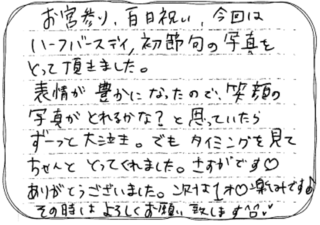 お宮参り、百日祝い、今回は
ハーフバースデイ、初節句の写真を
とって頂きました。
表情が豊かになったので、笑顔の
写真がとれるかな？と思っていたら
ずーっと大泣き。でもタイミングを見て
ちゃんととってくれました。さすがです♡
ありがとうございました。次は1才♡楽しみです♪
その時はよろしくお願い致します^^♪